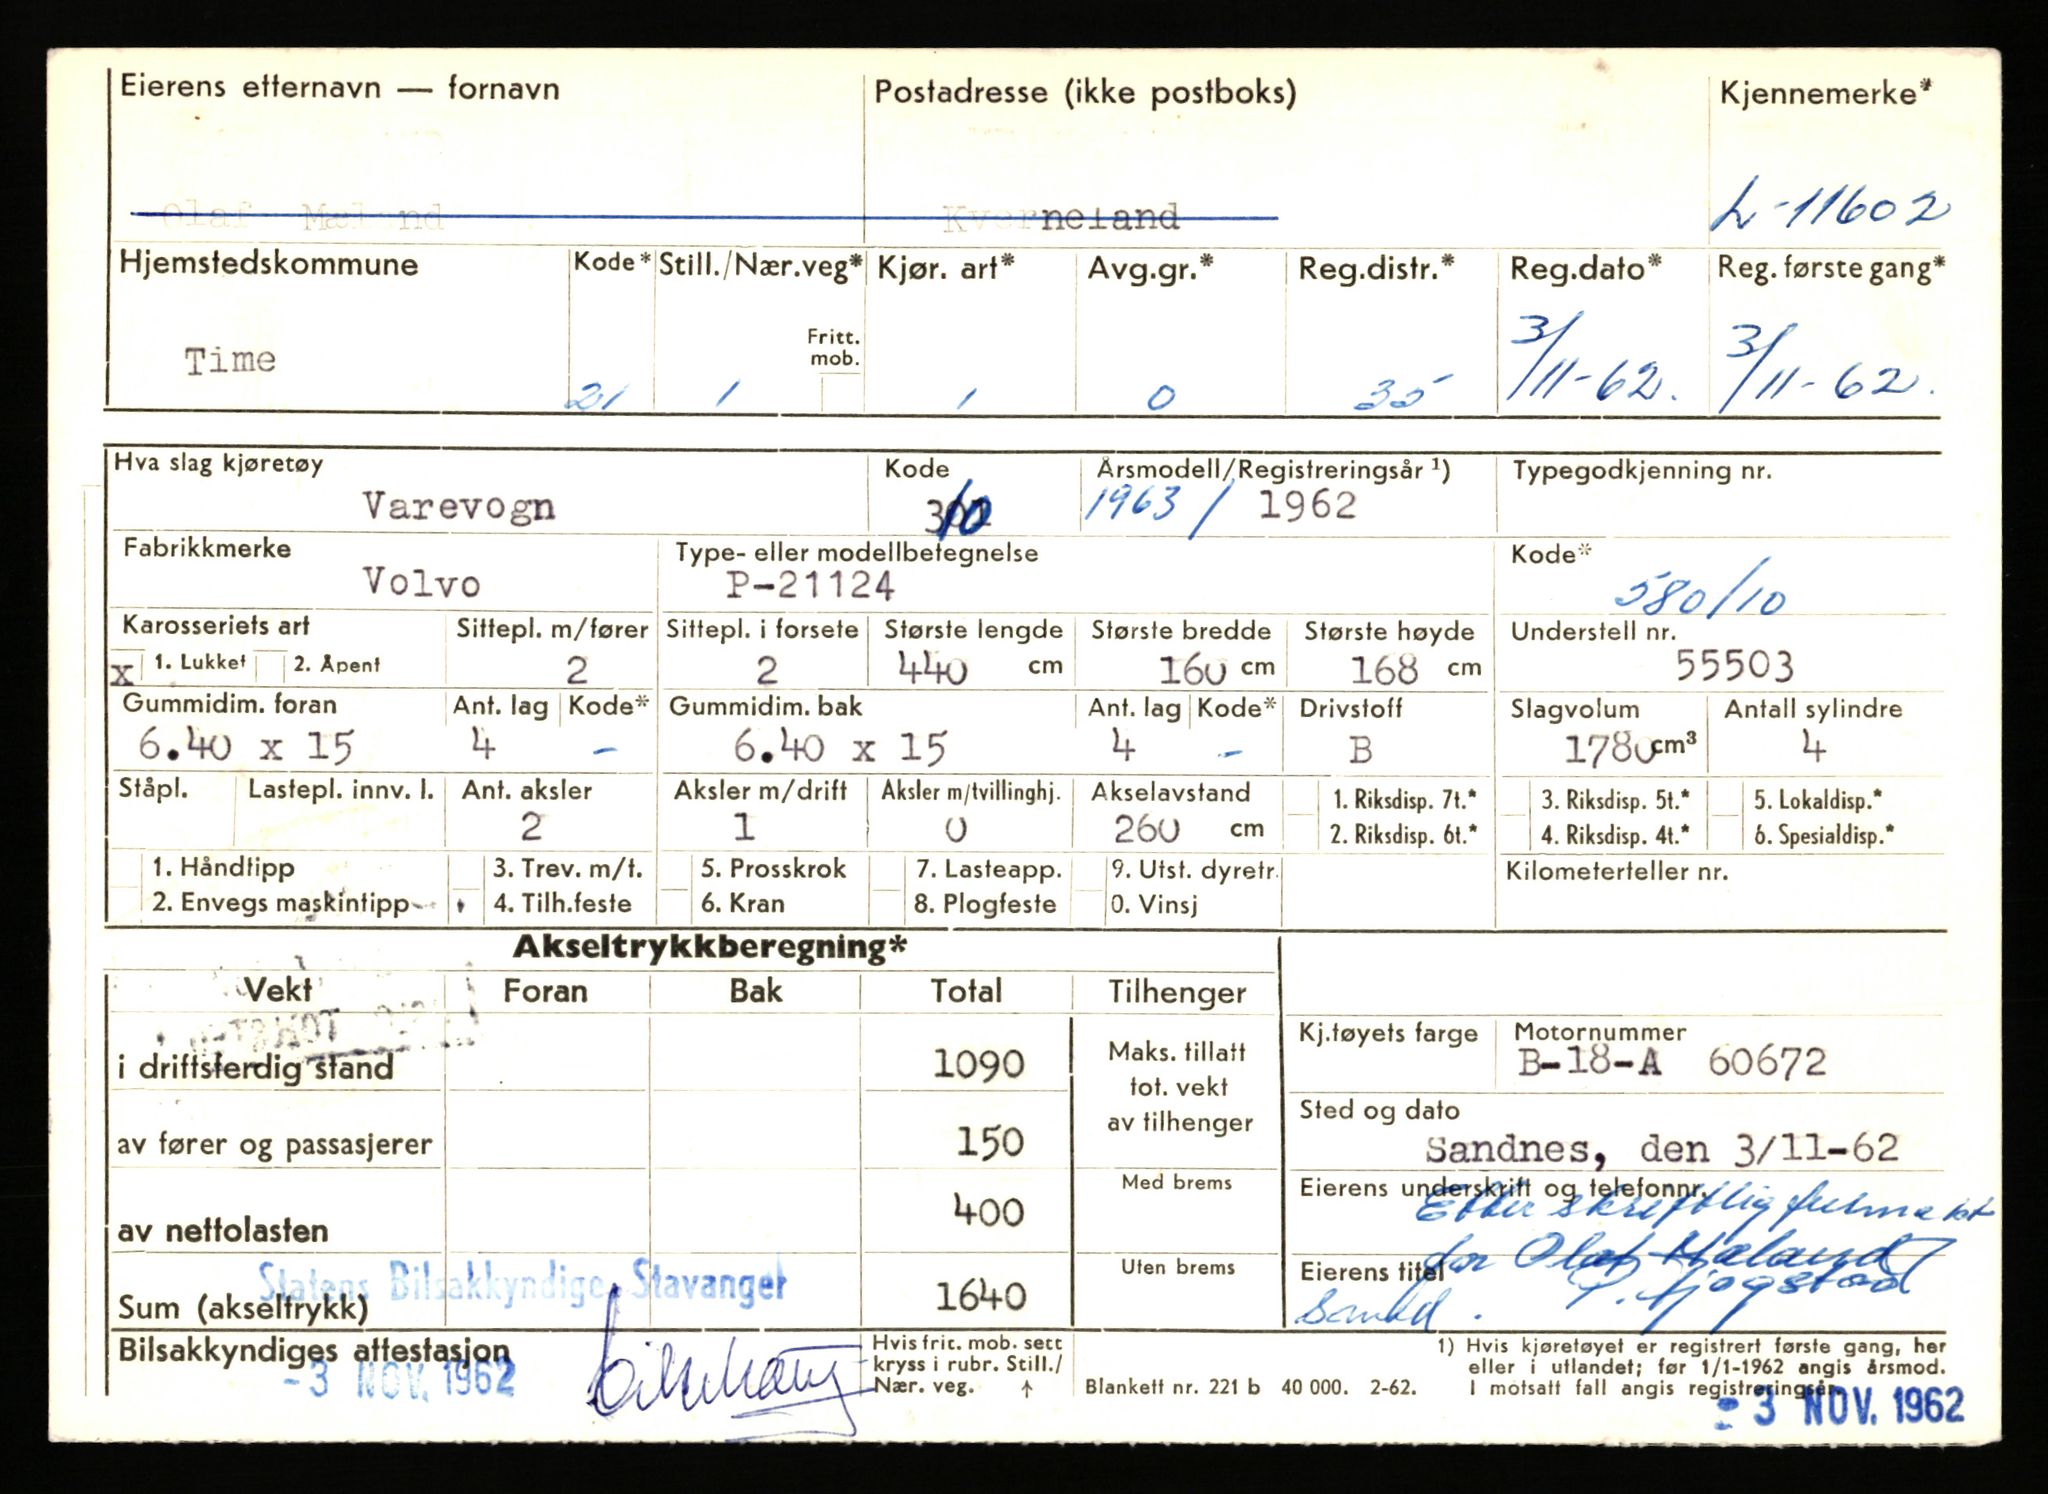 Eierens etternavn — fornavn Postadresse (ikke postboks) Kjennemerke*
Olaf Mæland Kverneland L-11602
Hjemstedskommune Kode* Still./Nær.veg* Kjør. art* Avg.gr.* Reg.distr.* Reg.dato* Reg. første gang*
Fritt. mob.
Time 21 1 1 0 35 3/11-62. 3/11-62.
Hva slag kjøretøy Kode Årsmodell/Registreringsår ¹) Typegodkjenning nr.
Varevogn 10 1963 / 1962
Fabrikkmerke Type- eller modellbetegnelse Kode*
Volvo P-21124 580/10
Karosseriets art Sittepl. m/fører Sittepl. i forsete Største lengde Største bredde Største høyde Understell nr.
x 1. Lukket 2. Åpent 2 2 440 cm 160 cm 168 cm 55503
Gummidim. foran Ant. lag Kode* Gummidim. bak Ant. lag Kode* Drivstoff Slagvolum Antall sylindre
6.40 x 15 4 - 6.40 x 15 4 - B 1780 cm³ 4
Ståpl. Lastepl. innv. l. Ant. aksler Aksler m/drift Aksler m/tvillinghj. Akselavstand 1. Riksdisp. 7t.* 3. Riksdisp. 5t.* 5. Lokaldisp.*
2 1 0 260 cm 2. Riksdisp. 6t.* 4. Riksdisp. 4t.* 6. Spesialdisp.*
1. Håndtipp 3. Trev. m/t. 5. Prosskrok 7. Lasteapp. 9. Utst. dyretr. Kilometerteller nr.
2. Envegs maskintipp 4. Tilh.feste 6. Kran 8. Plogfeste 0. Vinsj
Akseltrykkberegning*
Vekt Foran Bak Total Tilhenger
Kj.tøyets farge Motornummer
i driftsferdig stand 1090 Maks. tillatt tot. vekt av tilhenger B-18-A 60672
Sted og dato
av fører og passasjerer 150 Sandnes, den 3/11-62
Med brems Eierens underskrift og telefonnr.
av nettolasten 400 Etter skriftlig fullmakt
for Olaf Mæland
Statens Bilsakkyndige, Stavanger Uten brems Eierens titel
Sum (akseltrykk) 1640
Bilsakkyndiges attestasjon Hvis frit. mob. sett kryss i rubr. Still./ Nær. veg. ↑
-3 NOV. 1962
Blankett nr. 221 b 40 000. 2-62.
1) Hvis kjøretøyet er registrert første gang, her
eller i utlandet; før 1/1-1962 angis årsmod.
I motsatt fall angis registreringsår.
-3 NOV. 1962